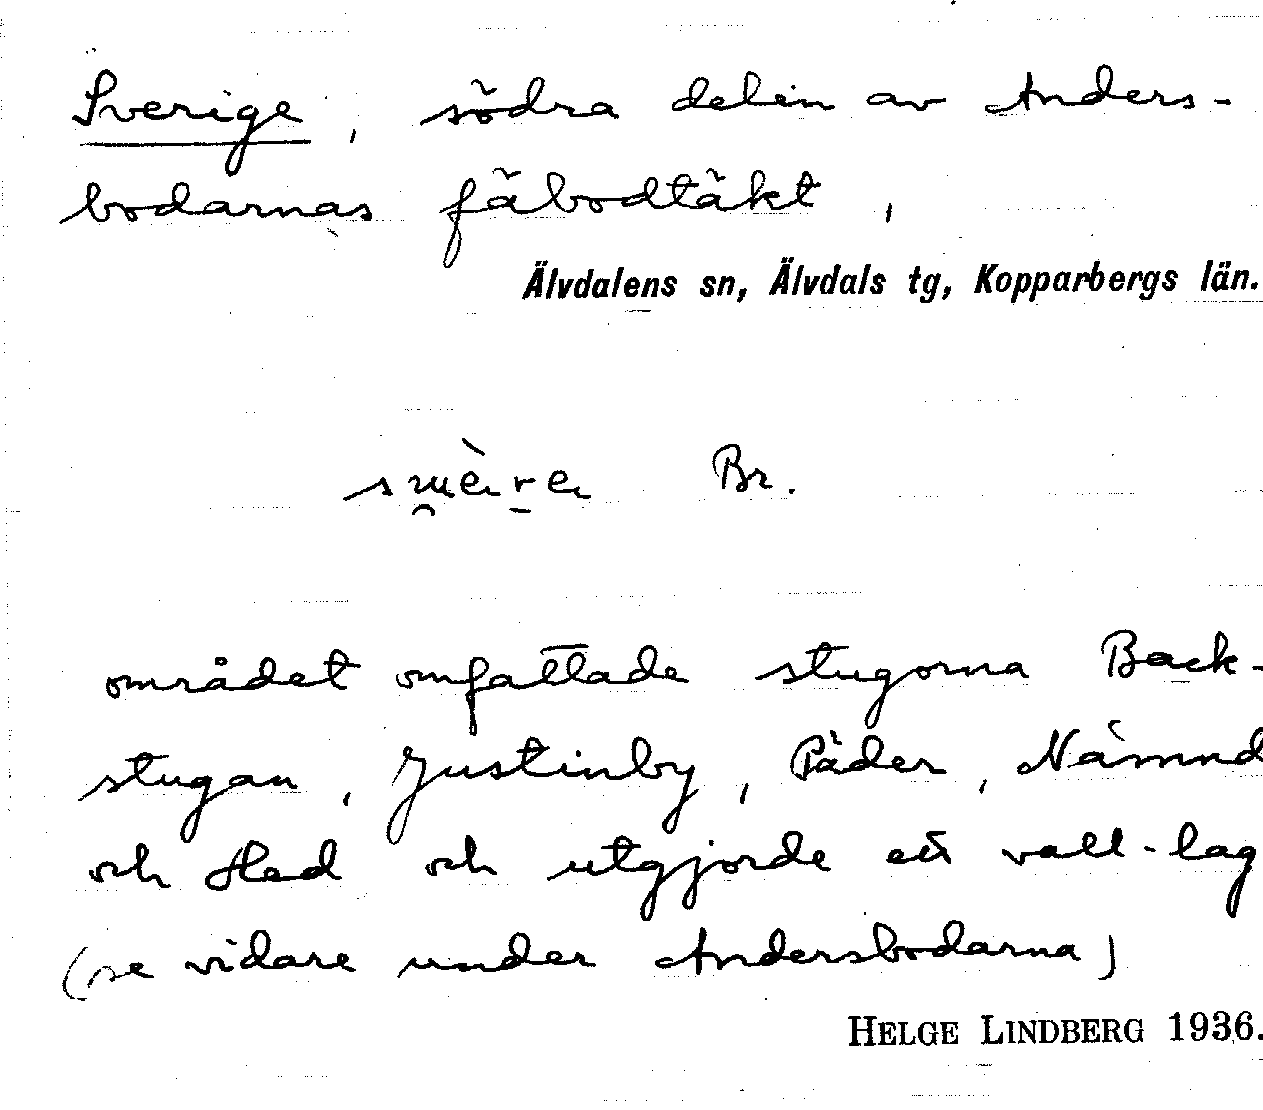 Sverige, södra delen av Anders-
bodarnas fäbodtäkt,
Älvdalens sn, Älvdals tg, Kopparbergs län.
Br.
området omfattade stugorna Back-
stugan, Justinby, Päder, Nämnd
och Hed och utgjorde ett vall-lag
(se vidare under Andersbodarna)
HELGE LINDBERG 1936.